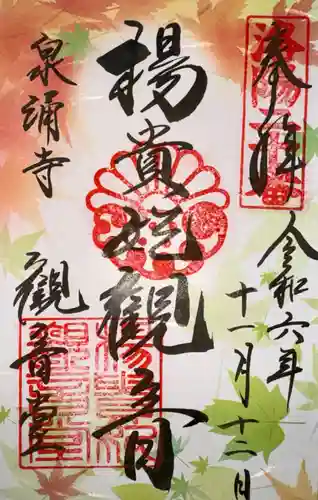 奉拝
令和六年
十一月十二日
楊貴妃観音
泉涌寺
観音堂